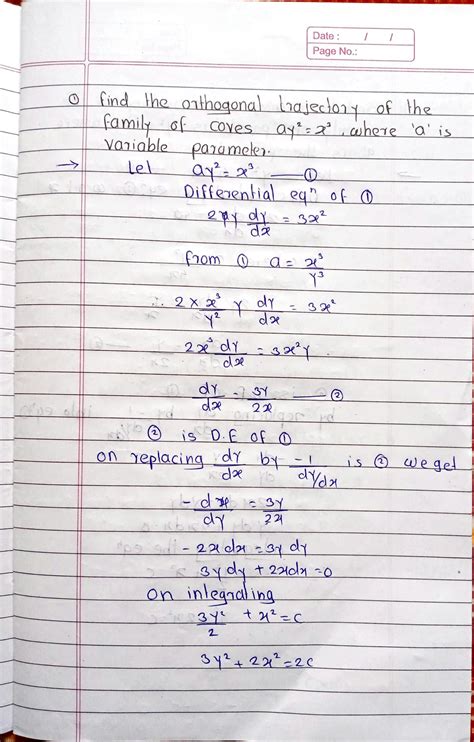 Date : / /
Page No.:
① find the orthogonal trajectory of the
family of coves ay² = x³, where 'a' is
variable parameter.
→ Let ay² = x³ — ①
Differential eqⁿ of ①
2ay dy/dx = 3x²
from ① a = x³/y³
∴ 2 × x³/y² y dy/dx = 3x²
2x³ dy/dx = 3x²y
dy/dx = 3y/2x — ②
② is D.E of ①
on replacing dy/dx by -1/dy/dx is ② we get
- dx/dy = 3y/2x
- 2x dx = 3y dy
3y dy + 2x dx = 0
On integrating
3y²/2 + x² = c
3y² + 2x² = 2c